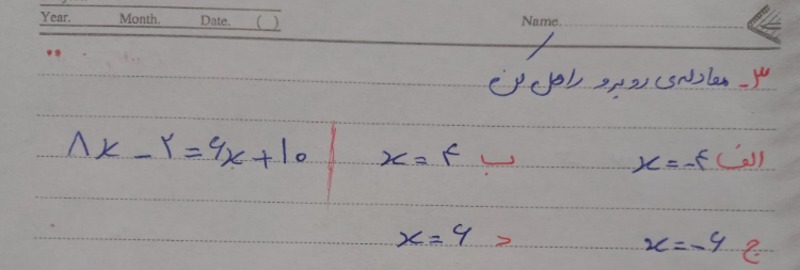 Year. Month. Date. ( ) Name.
۳- معادله‌ی روبرو را حل کن
۸x - ۲ = ۶x + ۱۰
الف x = -۴ ب x = ۴
ج x = -۶ د x = ۶